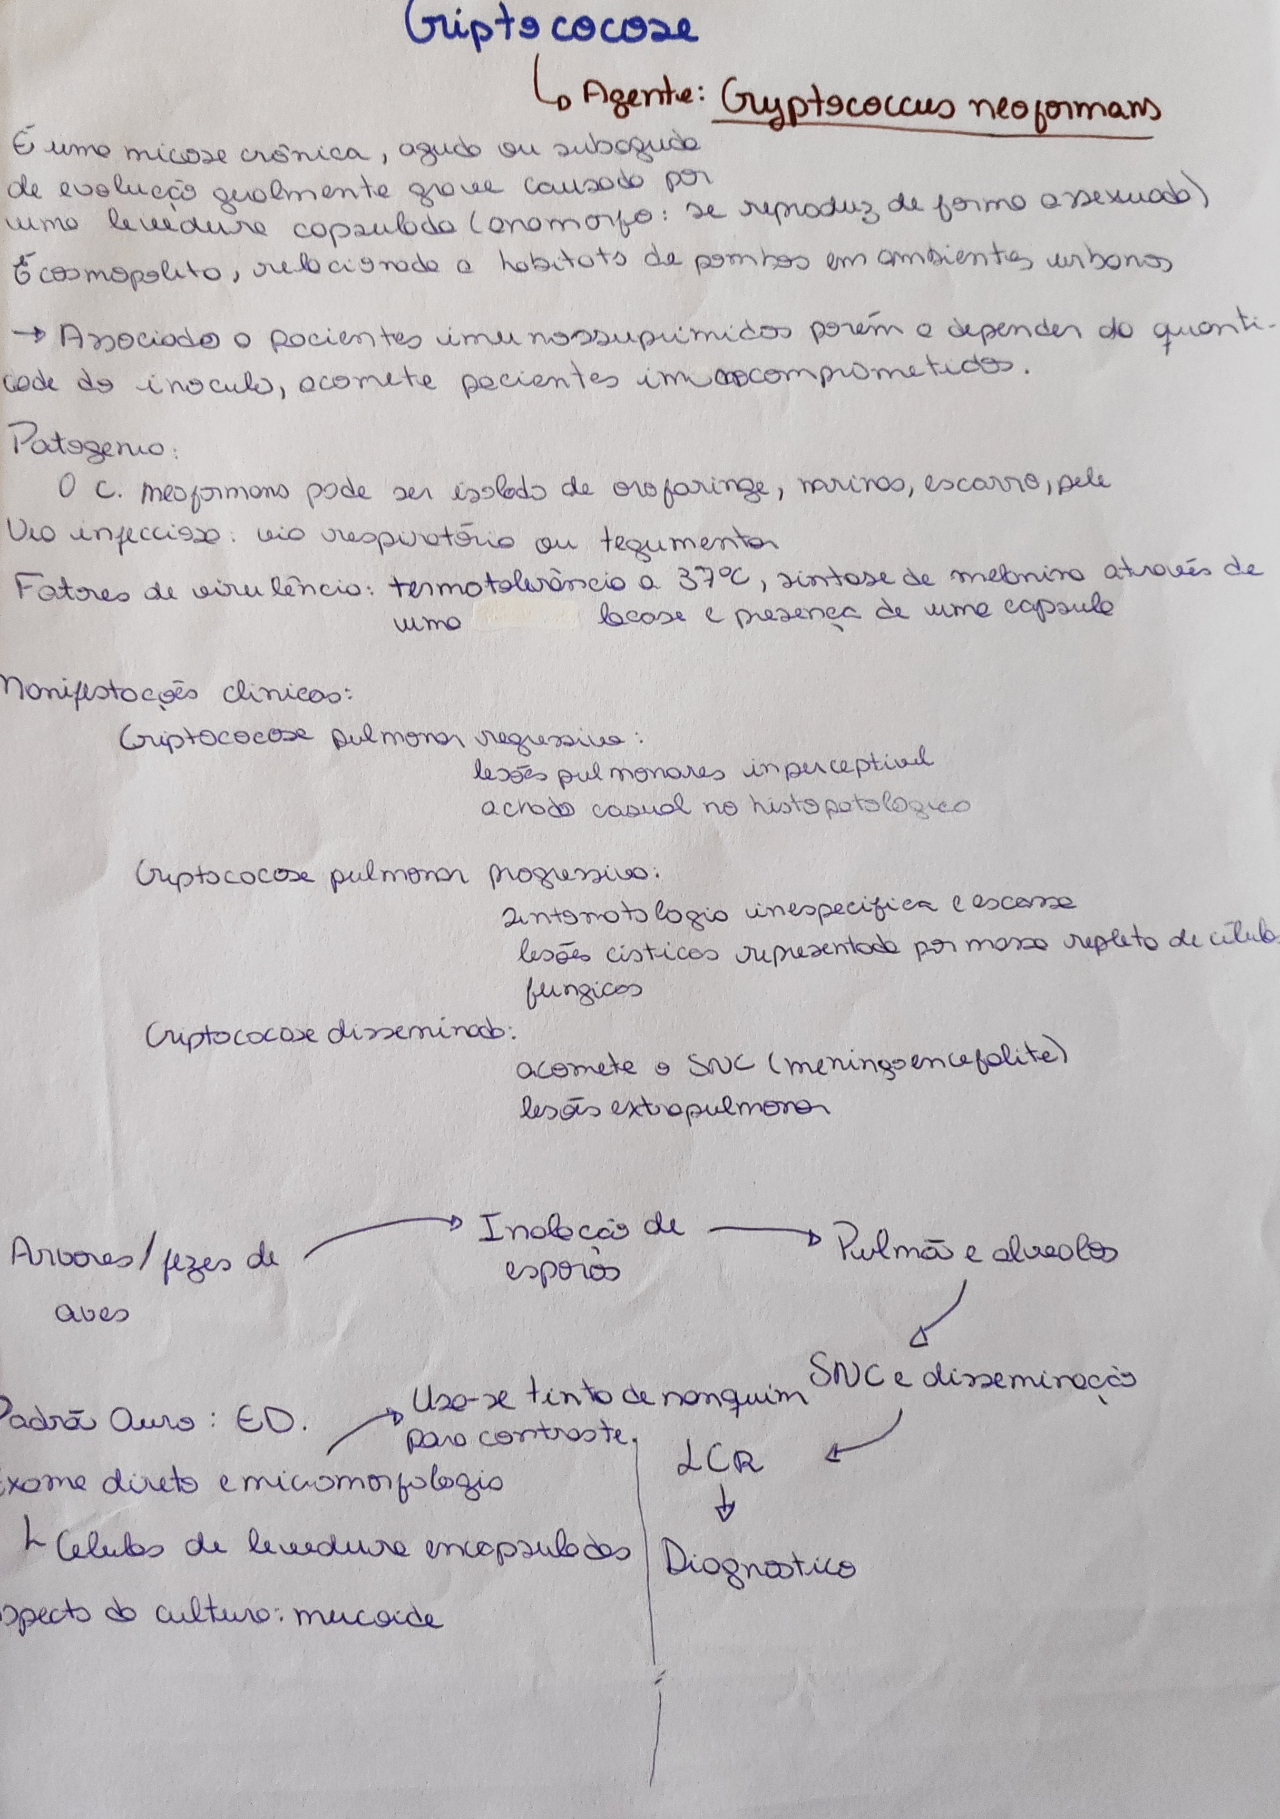 Criptococose
Agente: Cryptococcus neoformans
É uma micose crônica, aguda ou subaguda
de evolução geralmente grave causada por
uma levedura capsulada (anamorfo: se reproduz de forma assexuada)
É cosmopolita, relacionada a habitats de pombos em ambientes urbanos
→ Associado a pacientes imunossuprimidos porém a depender da quanti-
dade do inoculo, acomete pacientes imunocomprometidos.
Patogenia:
O C. neoformans pode ser isolado de orofaringe, narinas, escarro, pele
Via infecciosa: via respiratória ou tegumentar
Fatores de virulência: termotolerância a 37°C, síntese de melanina através de
uma lacase e presença de uma capsula
Manifestações clinicas:
Criptococose pulmonar regressiva:
lesões pulmonares inperceptivel
achado casual no histopatologico
Criptococose pulmonar progressiva:
sintomatologia inespecifica e escassa
lesões cisticas representada por massa repleta de célula
fungicas
Criptococose disseminada:
acomete o SNC (meningoencefalite)
lesões extrapulmonar
Arvores/fezes de
aves
→ Inalação de
esporos
→ Pulmão e alveolos
SNC e disseminação
LCR
Diagnostico
Padrão Ouro: ED.
Usa-se tinta de nanquim
para contraste.
Exame direto e micromorfologia
Celulas de levedura encapsuladas
aspecto da cultura: mucoide